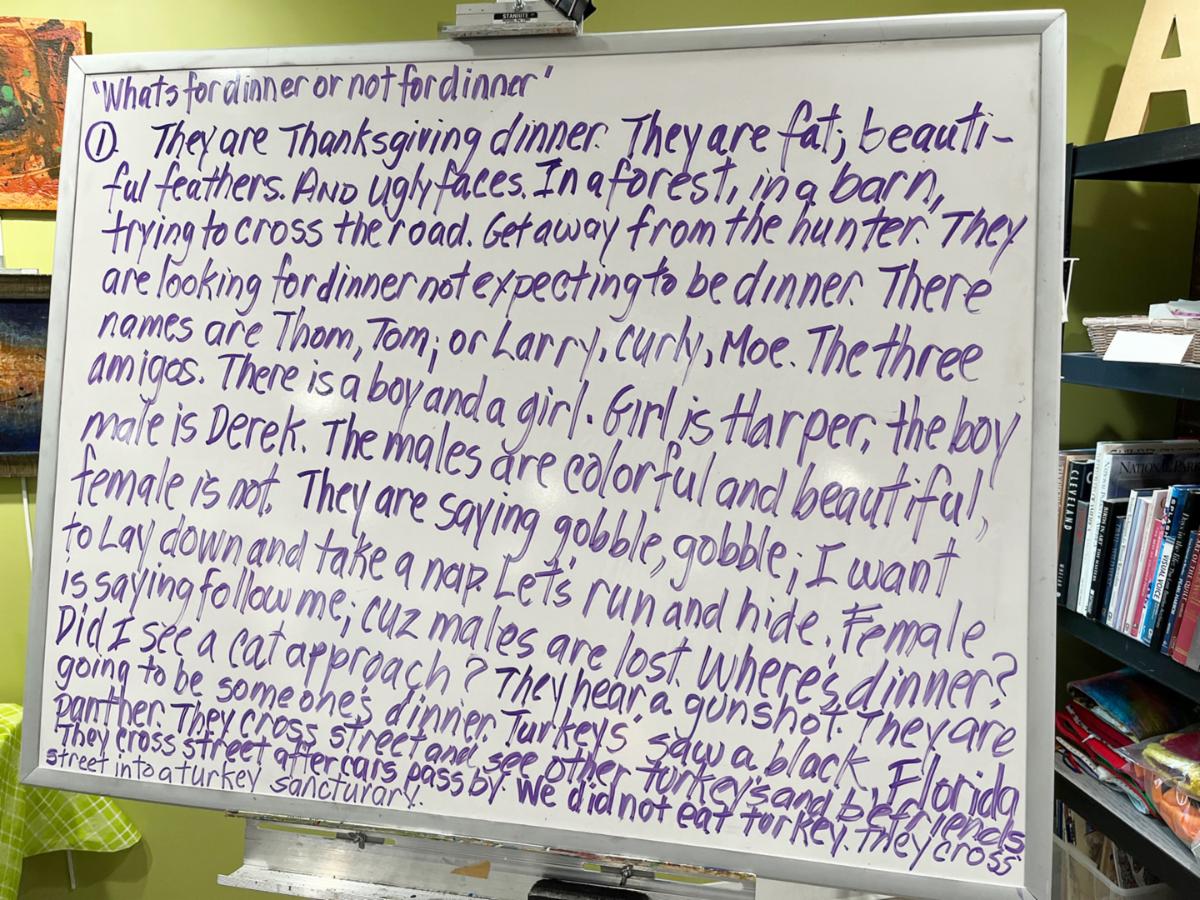 STANRITE
"Whats for dinner or not for dinner"
①. They are Thanksgiving dinner. They are fat; beauti-
ful feathers. AND ugly faces. In a forest, in a barn,
trying to cross the road. Get away from the hunter. They
are looking for dinner not expecting to be dinner. There
names are Thom, Tom; or Larry, Curly, Moe. The three
amigos. There is a boy and a girl. Girl is Harper, the boy
male is Derek. The males are colorful and beautiful,
female is not. They are saying gobble, gobble; I want
to Lay down and take a nap. Let's run and hide. Female
is saying follow me; cuz males are lost. Where's dinner?
Did I see a cat approach? They hear a gunshot. They are
going to be someone's dinner. Turkeys' saw a black Florida
panther. They cross street and see other turkey's and befriends
They cross street after cars pass by. We did not eat turkey. They cross
street into a turkey sancturary.
A
NATIONAL PARKS
CLEVELAND
VISUAL VOICE